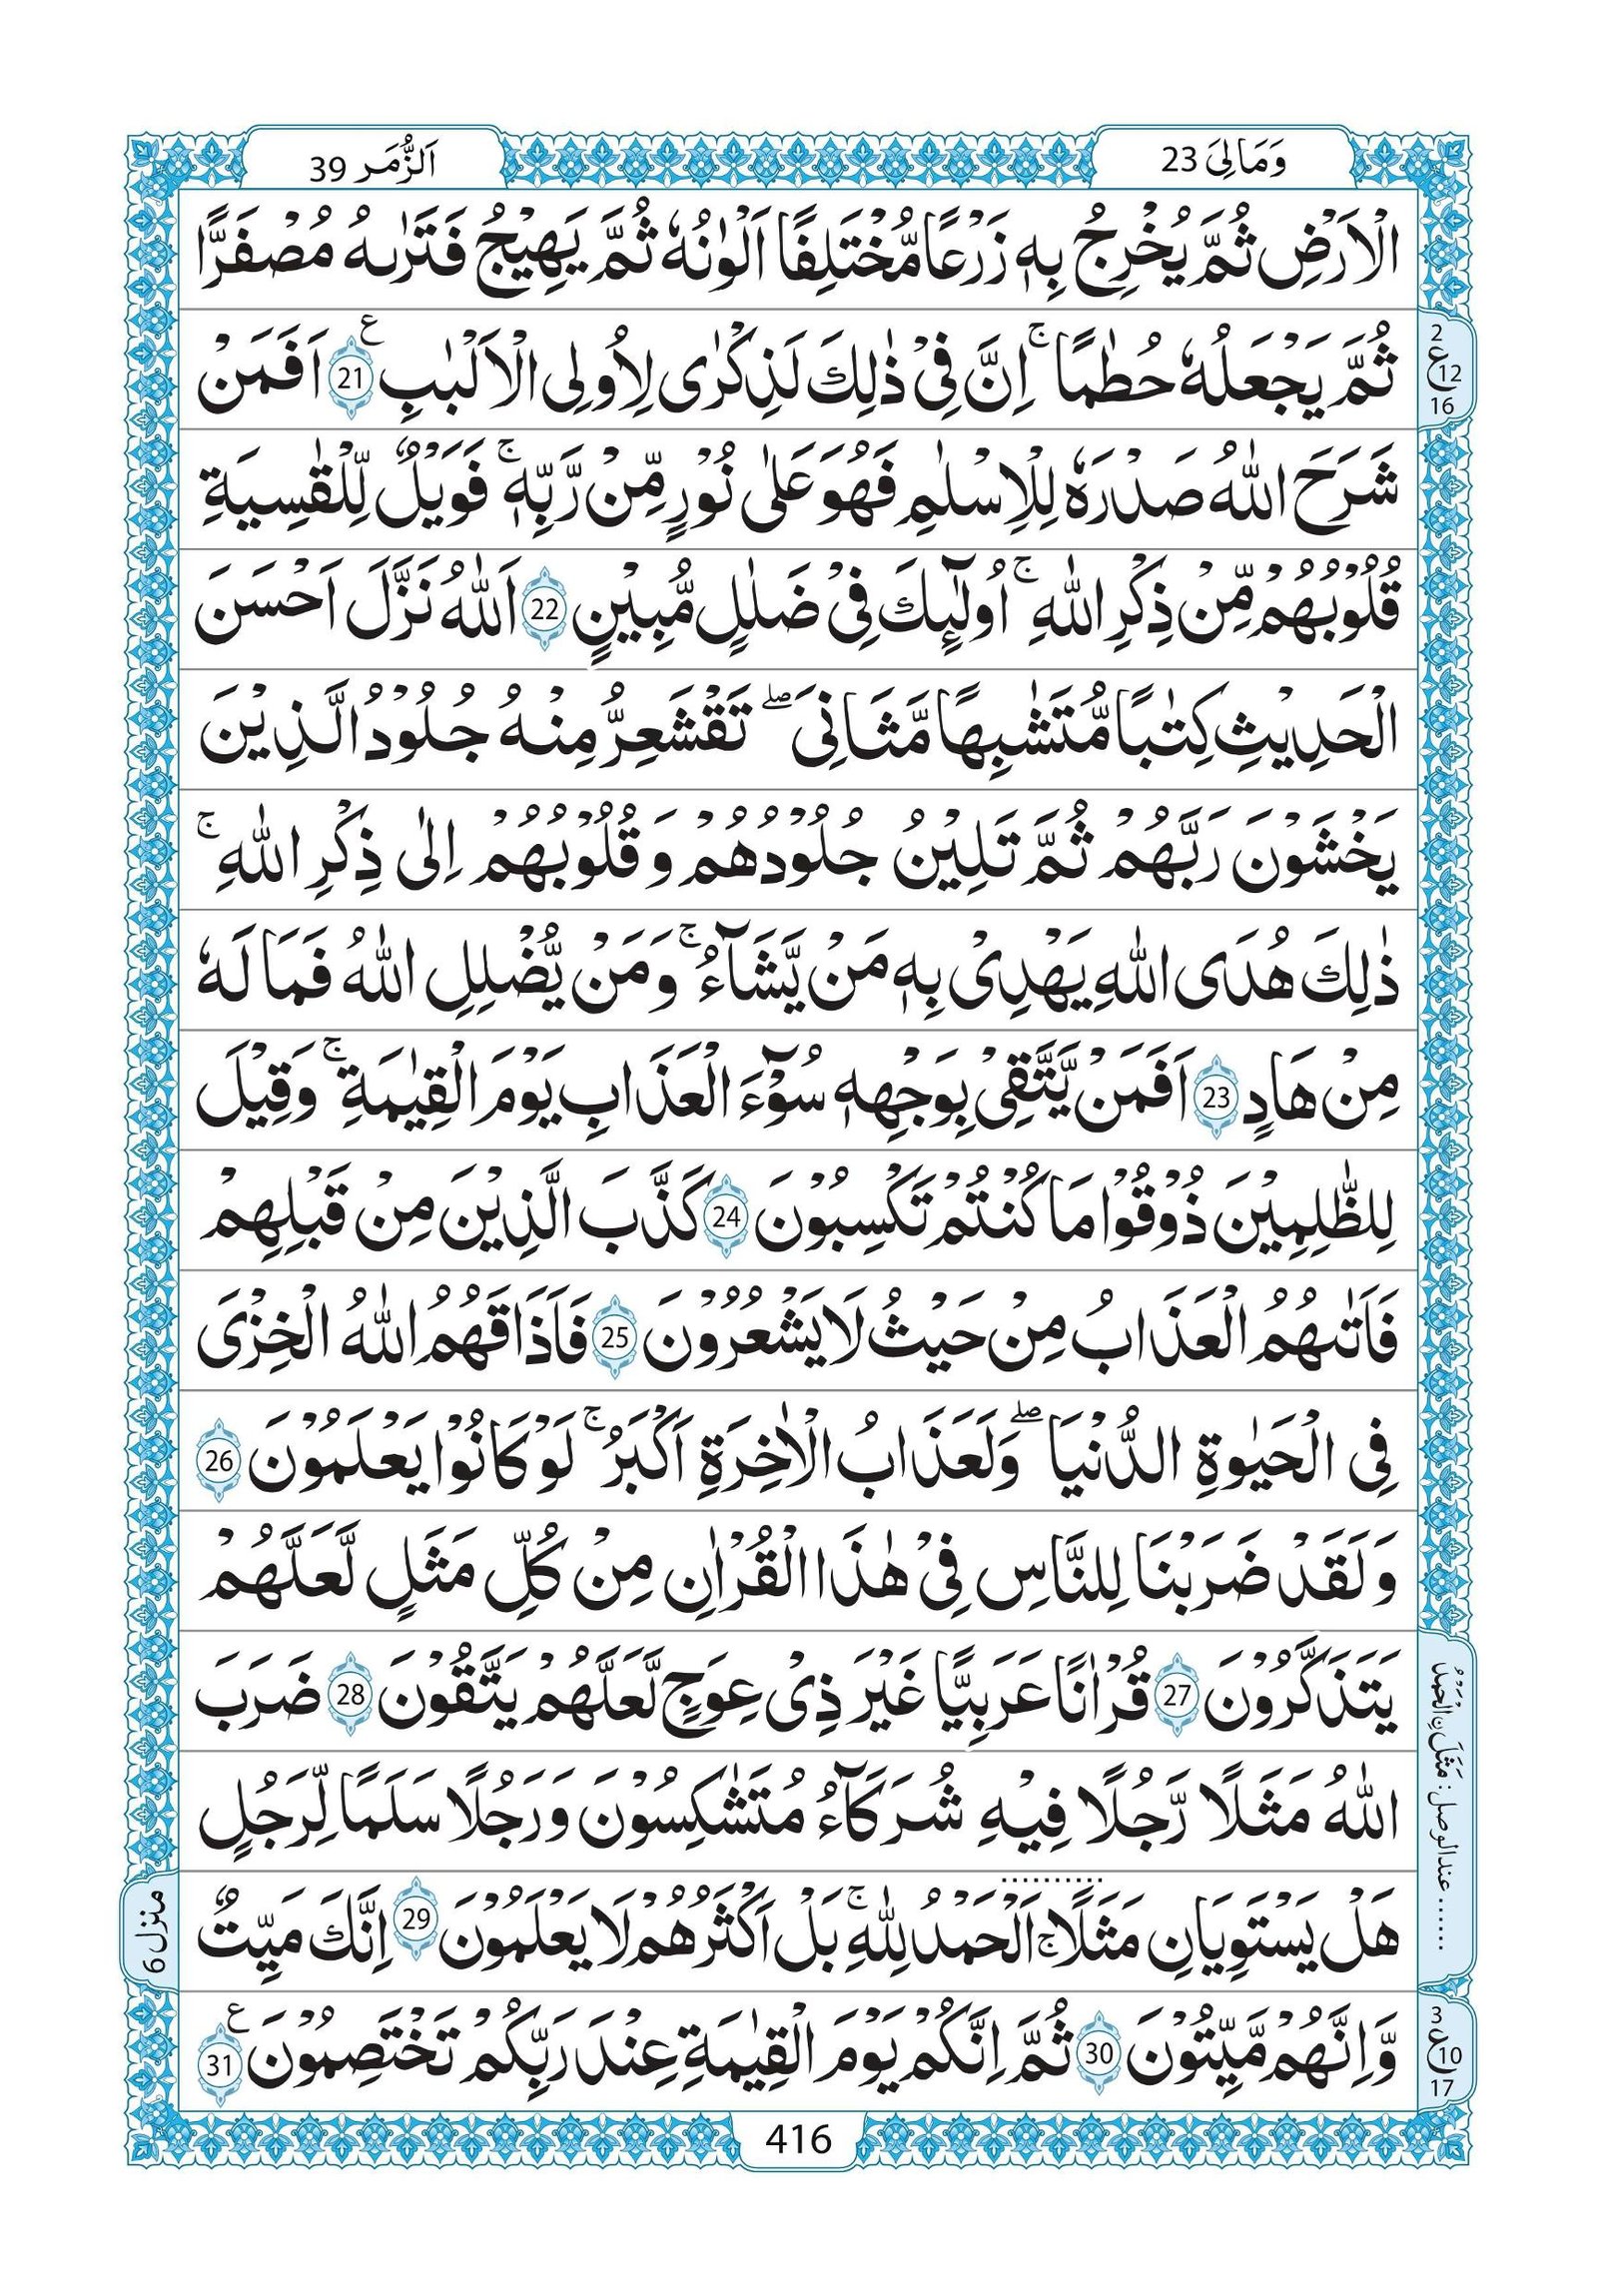 وَمَالِیَ 23
اَلزُّمَر 39
الْاَرْضِ ثُمَّ یُخْرِجُ بِهٖ زَرْعًا مُّخْتَلِفًا اَلْوٰنُهٗ ثُمَّ یَهِیْجُ فَتَرٰىهُ مُصْفَرًّا
ثُمَّ یَجْعَلُهٗ حُطٰمًا ۚ اِنَّ فِیْ ذٰلِكَ لَذِكْرٰی لِاُولِی الْاَلْبٰبِ ۧ 21 اَفَمَنْ
شَرَحَ اللّٰهُ صَدْرَهٗ لِلْاِسْلٰمِ فَهُوَ عَلٰی نُوْرٍ مِّنْ رَّبِّهٖ ۚ فَوَیْلٌ لِّلْقٰسِیَةِ
قُلُوْبُهُمْ مِّنْ ذِكْرِ اللّٰهِ ۚ اُولٰٓئِكَ فِیْ ضَلٰلٍ مُّبِیْنٍ 22 اَللّٰهُ نَزَّلَ اَحْسَنَ
الْحَدِیْثِ كِتٰبًا مُّتَشٰبِهًا مَّثَانِیَ ۖ تَقْشَعِرُّ مِنْهُ جُلُوْدُ الَّذِیْنَ
یَخْشَوْنَ رَبَّهُمْ ثُمَّ تَلِیْنُ جُلُوْدُهُمْ وَ قُلُوْبُهُمْ اِلٰی ذِكْرِ اللّٰهِ ۚ
ذٰلِكَ هُدَی اللّٰهِ یَهْدِیْ بِهٖ مَنْ یَّشَآءُ ۚ وَمَنْ یُّضْلِلِ اللّٰهُ فَمَا لَهٗ
مِنْ هَادٍ 23 اَفَمَنْ یَّتَّقِیْ بِوَجْهِهٖ سُوْٓءَ الْعَذَابِ یَوْمَ الْقِیٰمَةِ ۚ وَقِیْلَ
لِلظّٰلِمِیْنَ ذُوْقُوْا مَا كُنْتُمْ تَكْسِبُوْنَ 24 كَذَّبَ الَّذِیْنَ مِنْ قَبْلِهِمْ
فَاَتٰىهُمُ الْعَذَابُ مِنْ حَیْثُ لَا یَشْعُرُوْنَ 25 فَاَذَاقَهُمُ اللّٰهُ الْخِزْیَ
فِی الْحَیٰوةِ الدُّنْیَا ۖ وَلَعَذَابُ الْاٰخِرَةِ اَكْبَرُ ۚ لَوْ كَانُوْا یَعْلَمُوْنَ 26
وَلَقَدْ ضَرَبْنَا لِلنَّاسِ فِیْ هٰذَا الْقُرْاٰنِ مِنْ كُلِّ مَثَلٍ لَّعَلَّهُمْ
یَتَذَكَّرُوْنَ 27 قُرْاٰنًا عَرَبِیًّا غَیْرَ ذِیْ عِوَجٍ لَّعَلَّهُمْ یَتَّقُوْنَ 28 ضَرَبَ
اللّٰهُ مَثَلًا رَّجُلًا فِیْهِ شُرَكَآءُ مُتَشٰكِسُوْنَ وَرَجُلًا سَلَمًا لِّرَجُلٍ
هَلْ یَسْتَوِیَانِ مَثَلًا ج اَلْحَمْدُ لِلّٰهِ ۚ بَلْ اَكْثَرُهُمْ لَا یَعْلَمُوْنَ 29 اِنَّكَ مَیِّتٌ
وَّاِنَّهُمْ مَّیِّتُوْنَ 30 ثُمَّ اِنَّكُمْ یَوْمَ الْقِیٰمَةِ عِنْدَ رَبِّكُمْ تَخْتَصِمُوْنَ ۧ 31
2
ع 12
16
...... عند الوصل : مَثَلَنِ الْحَمْدُ
3
ع 10
17
منزل 6
416